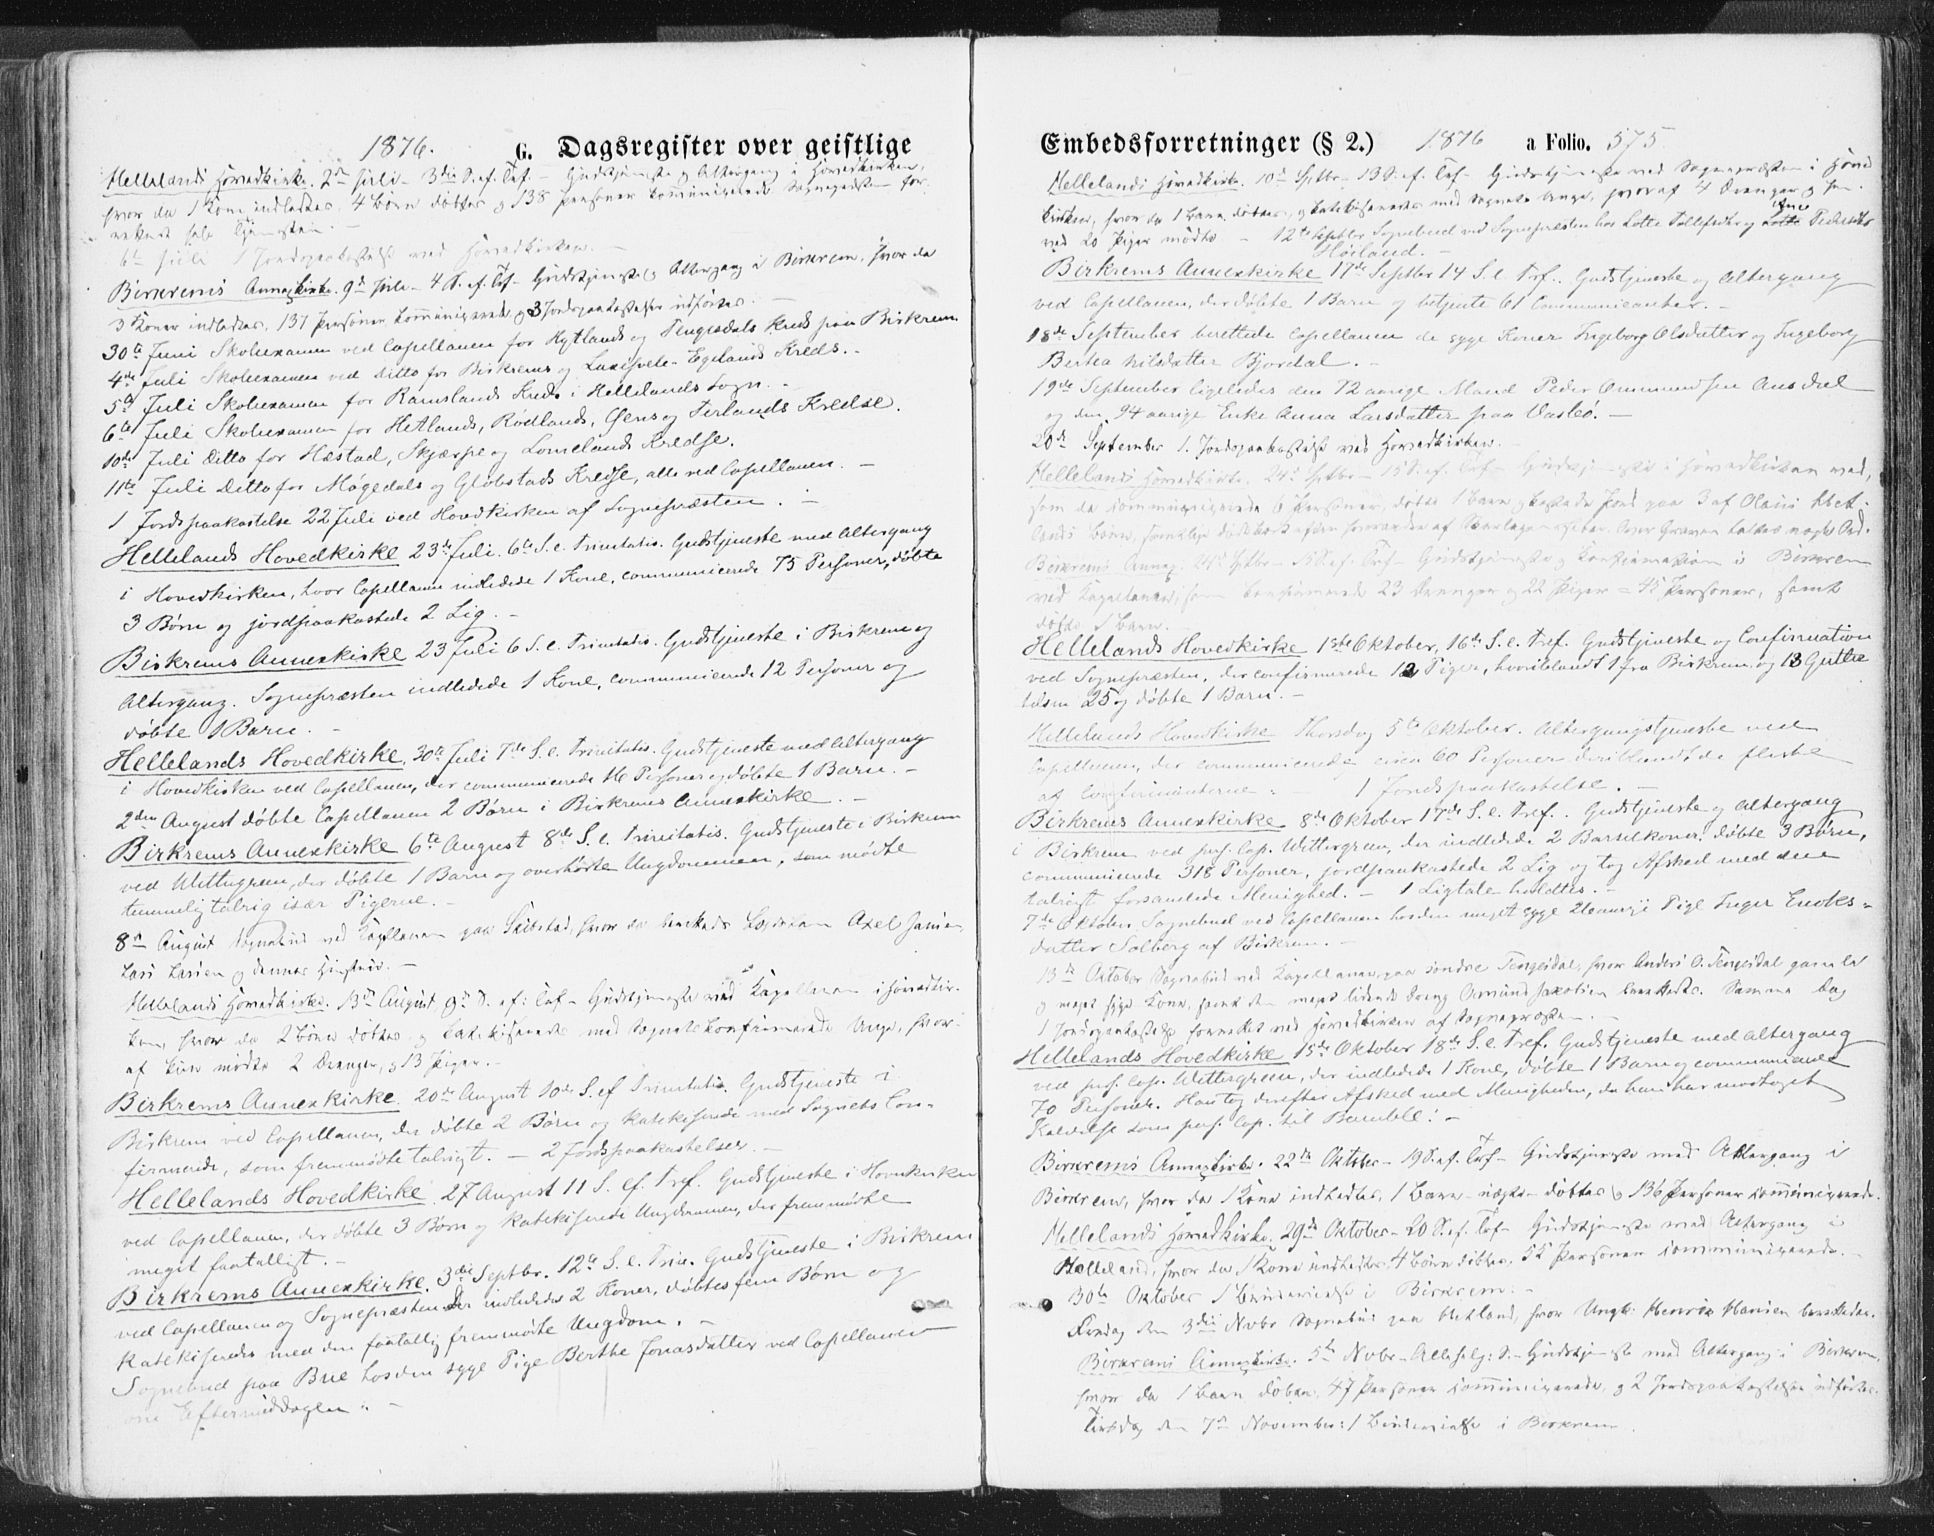 1876. G. Dagsregister over geistlige
Hellelands Hovedkirke. 2den Juli – 3die S. ef. Tref – Gudstjeneste og Altergang i Hovedkirken,
hvor da 1 Kone indlededes, 4 Børn døbtes og 138 Personer kommunicerede. Sognepræsten for-
rettede hele Tjenesten. –
6te Juli 1 Jordspaakastelse ved Hovedkirken. –
Birkrems Annexkirke. 9de Juli – 4 S. ef. Tref – Gudstjeneste og Altergang i Birkrem, hvor da
3 Koner indlededes, 137 Personer kommunicerede og 3 Jordspaakastelser udførtes. –
30te Juni Skoleexamen ved Capellanen for Kytlands og Tengesdals Kreds paa Birkrem.
4de Juli Skoleexamen ved Ditto for Birkrems og Egelands Kreds. –
5te Juli Skoleexamen for Ramslands Kreds i Hellelands Sogn. –
6te Juli Skoleexamen for Hetlands, Rødlands, og Terlands Kredse.
10de Juli Ditto for Hæstad, Skjærpe og Lomelands Kredse.
11te Juli Ditto for Møgedals og Gløbstads Kredse, alle ved Capellanen. –
1 Jordspaakastelse 22 Juli ved Hovedkirken af Sognepræsten. –
Hellelands Hovedkirke 23de Juli. 6te S. e. Trinitatis. Gudstjeneste med Altergang
i Hovedkirken, hvor Capellanen indledede 1 Kone, communicerede 75 Personer, døbte
3 Børn og jordpaakastede 2 Lig. –
Birkrems Annexkirke 23 Juli 6 S. e. Trinitatis. Gudstjeneste i Birkrem og
Altergang. Sognepræsten indledede 1 Kone, communicerede 12 Personer og
døbte 1 Barn. –
Hellelands Hovedkirke. 30te Juli 7de S. e. Trinitatis. Gudstjeneste med Altergang
i Hovedkirken ved Capellanen, der communicerede 16 Personer og døbte 1 Barn. –
2den August døbte Capellanen 2 Børn i Birkrems Annexkirke. –
Birkrems Annexkirke 6te August 8de S. e. Trinitatis. Gudstjeneste i Birkrem
ved Wittergreen, der døbte 1 Barn og overhørte Ungdommen, som mødte
temmelig talrig især Pigerne. –
8de August Sognebud ved Capellanen paa hvor da berettedes Axel Jansen
Lars Larsen og dennes Hustru. –
Hellelands Hovedkirke. 13de August 9de S. ef: Tref – Gudstjeneste ved Kapellanen i Hovedkir-
ken, hvor da 2 Børn døbtes og katekiserede med Sognets konfirmerede Unge, hvor-
af kun mødte 2 Drenge og 13 Piger. –
Birkrems Annexkirke. 20de August 10de S. ef Trinitatis. Gudstjeneste i
Birkrem ved Capellanen, der døbte 2 Børn og katekiserede med Sognets Con-
firmerede, som fremmødte talrigt. – 2 Jordspaakastelser. –
Hellelands Hovedkirke. 27 August 11 S. ef. Tref. Gudstjeneste i Hovedkirken
ved Capellanen, der døbte 3 Børn og katekiserede Ungdommen, der fremmødte
meget faatalligt. –
Birkrems Annexkirke. 3die Septbr. 12te S. e. Trin. Gudstjeneste i Birkrem
ved Capellanen og Sognepræsten. Der indlededes 2 Koner, døbtes fem Børn og
katekiseredes med den faatallig fremmødte Ungdom. –
Sognebud paa Brue hos den syge Pige Berthe Jonasdatter ved Capellanen
om Eftermiddagen. –
Embedsforretninger (§ 2.) 1876 a Folio. 575.
Hellelands Hovedkirke. 10de Sptbr – 13 S. ef. Tref – Gudstjeneste ved Sognepræsten i Hoved-
kirken, hvor da 1 Barn døbtes, og katekiseredes med Sognets Unge, hvoraf 4 Drenge og
20 Piger mødte – 12te Septbr Sognebud ved Sognepræsten hos Lotte og Pedersdtr
Høiland. –
Birkrems Annexkirke 17de Septbr 14 S. e. Tref. Gudstjeneste og Altergang
ved Capellanen, der døbte 1 Barn og betjente 61 Communicanter. –
18de September berettede Capellanen de syge Koner Ingeborg Olsdatter og Ingeborg
Bertha Nilsdatter Bjordal. –
19de September ligeledes den 72 aarige Mand Peder Ommundsen Ausdal
og den 94 aarige Enke Anna Larsdatter paa –
20de September 1 Jordspaakastelse ved Hovedkirken. –
Hellelands Hovedkirke. 24de Sptbr – 15 S. ef. Tref – Gudstjeneste i Hovedkirken ved,
som da kommunicerede 6 Personer, døbte 1 Barn og kastede Jord paa 3 af Het-
lands Børn, Over Graven taltes nogle Ord.
Birkrems Annex. 24de Sptbr – 15 S. ef. Tref – Gudstjeneste og Konfirmation i Birkrem
ved Kapellanen, som konfirmerede 23 Drenge og 22 Piger = 45 Personer, samt
døbte 1 Barn. –
Hellelands Hovedkirke 1ste Oktober, 16de S. e. Tref. Gudstjeneste og Confirmation
ved Sognepræsten, der confirmerede 12 Piger, hvoriblandt 1 fra Birkrem, og 13 Gutter
tilsm 25 og døbte 1 Barn. –
Hellelands Hovedkirke Thorsdag 5te Oktober. Altergangstjeneste ved
Capellanen, der communicerede circa 60 Personer, deriblandt de fleste
af Confirmanterne. – 1 Jordspaakastelse. –
Birkrems Annexkirke 8de Oktober 17de S. e. Tref. Gudstjeneste og Altergang
i Birkrem ved pers. Cap. Wittergreen, der indledede 2 Barselkoner, døbte 3 Børn,
communicerede 318 Personer, jordpaakastede 2 Lig og tog Afsked med den
talrigt forsamlede Menighed. – 1 Ligtale holdtes. –
7de Oktober Sognebud ved Capellanen hos den meget syge Pige Inger Enoks-
datter Solberg af Birkrem. –
13de Oktober Sognebud ved Kapellanen paa søndre Tengesdal, hvor Anders O. Tengesdal gamle
og meget syge Kone, samt den meget lidende Dreng Omund Jakobsen berettedes. Samme Dag
1 Jordspaakastelse forrettet ved Hovedkirken af Sognepræsten. –
Hellelands Hovedkirke 15de Oktober 18de S. e. Tref. Gudstjeneste med Altergang
ved pers. Cap. Wittergreen, der indledede 1 Kone, døbte 1 Barn og communicerede
70 Personer. Han tog derefter Afsked med Menigheden, da han har modtaget
Kaldelse som pers. Cap. til Bamble. –
Birkrems Annexkirke. 22de Oktober – 19 S. ef. Tref – Gudstjeneste med Altergang i
Birkrem, hvor da 1 Kone indlededes, 1 Barn – – døbtes og 136 Personer kommunicerede.
Hellelands Hovedkirke. 29de Oktober – 20 S. ef. Tref – Gudstjeneste med Altergang i
Helleland, hvor da 1 Kone indlededes, 4 Børn døbtes, 52 Personer kommunicerede. –
30te Oktober 1 i Birkrem. –
Fredag den 3die Novbr Sognebud paa Hetland, hvor Ungk: Henrik Hansen berettedes.
Birkrems Annexkirke. 5te Novbr – Allehelg: S. – Gudstjeneste med Altergang i Birkrem,
hvor da 1 Barn døbtes, 47 Personer kommunicerede, og 2 Jordspaakastelser udførtes.
Tirsdag den 7de November: 1 i Birkrem.